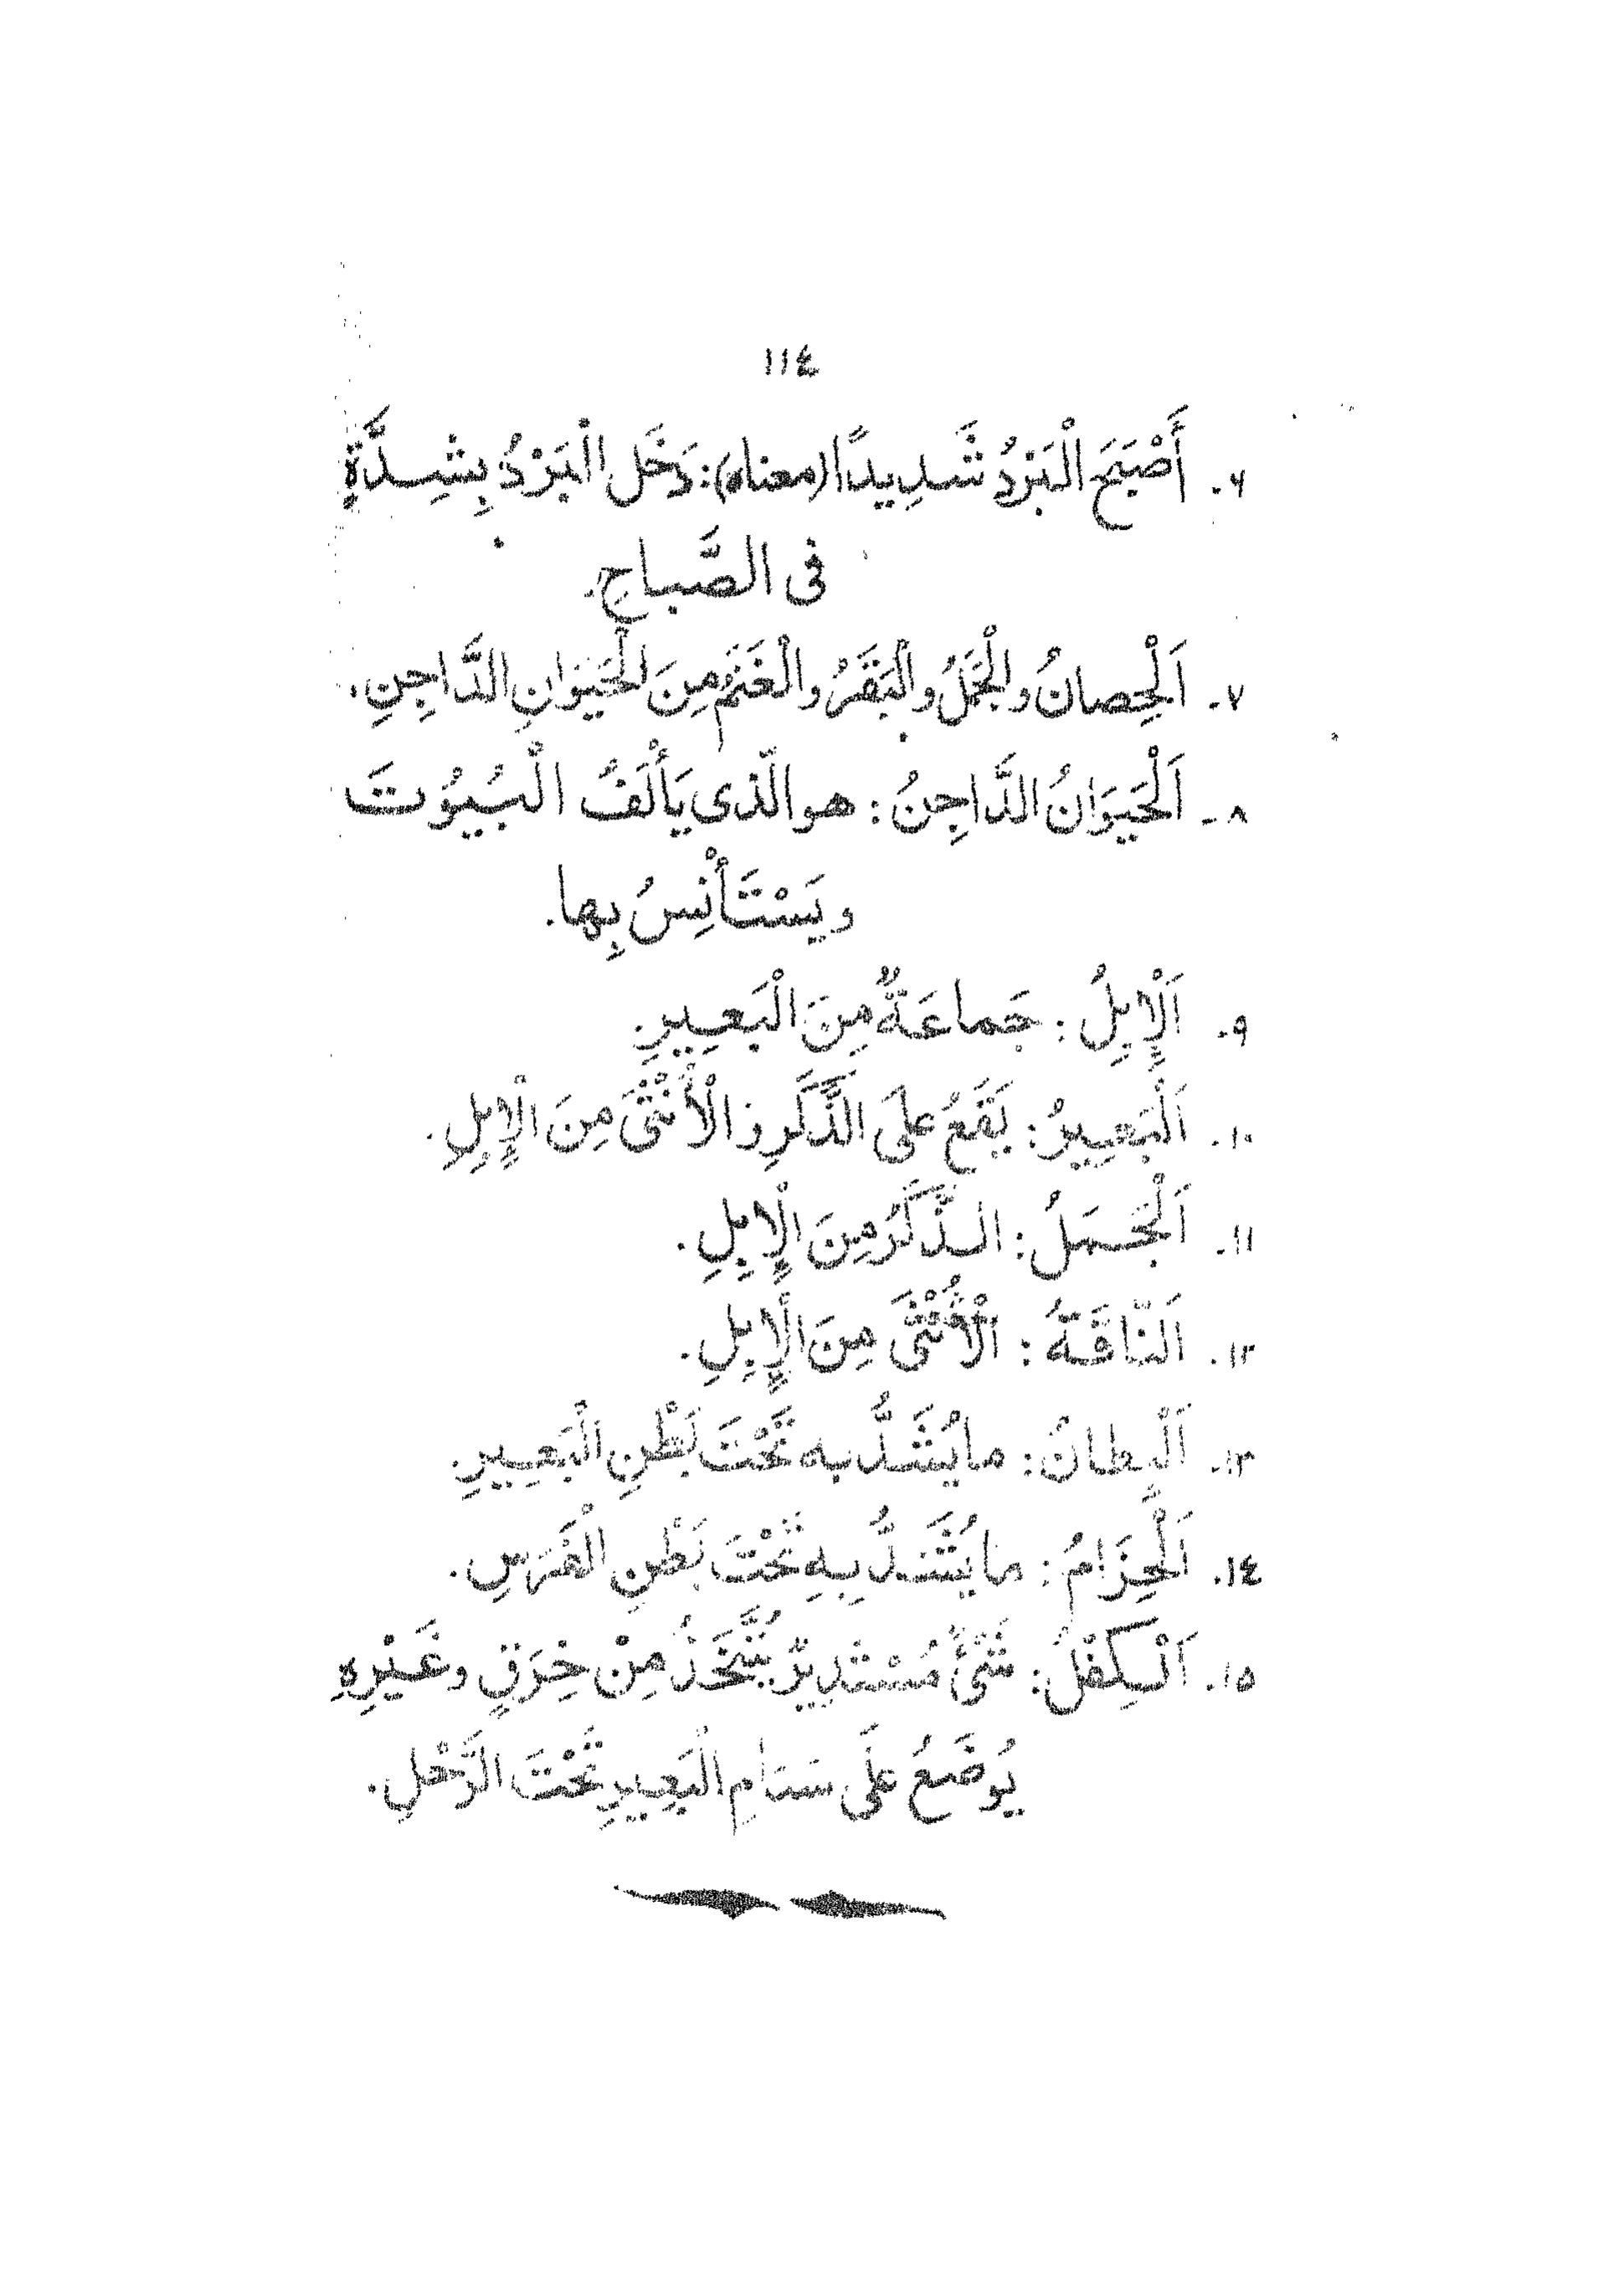 ١١٤
٦- أَصْبَحَ الْبَرْدُ شَدِيدًا (معناه): دَخَل الْبَرْدُ بِشِدَّةٍ
فى الصَّباحِ.
٧- اَلْحِصانُ والْجَمَلُ والْبَقَرُ والْغَنَمُ مِنَ الْحَيَوَانِ الدَّاجِنِ.
٨- اَلْحَيَوَانُ الدَّاجِنُ: هو الّذى يَأْلَفُ الْبُيُوْتَ
ويَسْتَأْنِسُ بِها.
٩- اَلْإِبِلُ: جَماعَةٌ مِنَ الْبَعِيرِ.
١٠- اَلْبَعِيرُ: يَقَعُ عَلَى الذَّكَرِ وَ الْأُنْثَى مِنَ الْإِبِلِ.
١١- اَلْجَمَلُ: الذَّكَرُ مِنَ الْإِبِلِ.
١٢- اَلنّاقَةُ: اَلْأُنْثَى مِنَ الْإِبِلِ.
١٣- اَلْبِطانُ: ما يُشَدُّ به تَحْتَ بَطْنِ الْبَعِيرِ.
١٤- اَلْحِزَامُ: ما يُشَدُّ بِهِ تَحْتَ بَطْنِ الْفَرَسِ.
١٥- اَلْكِفْلُ: شَىْءٌ مُسْتَدِيرٌ يُتَّخَذُ مِنْ خِرَقٍ وغَيْرِهِ
يُوضَعُ عَلَى سَنَامِ الْبَعِيرِ تَحْتَ الرَّحْلِ.